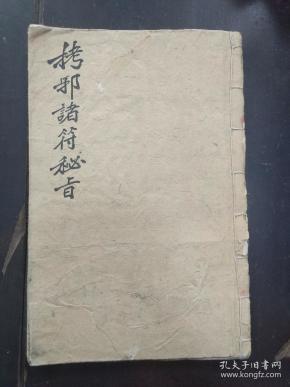 拷邪諸符秘旨
孔夫子旧书网
www.kongfz.com